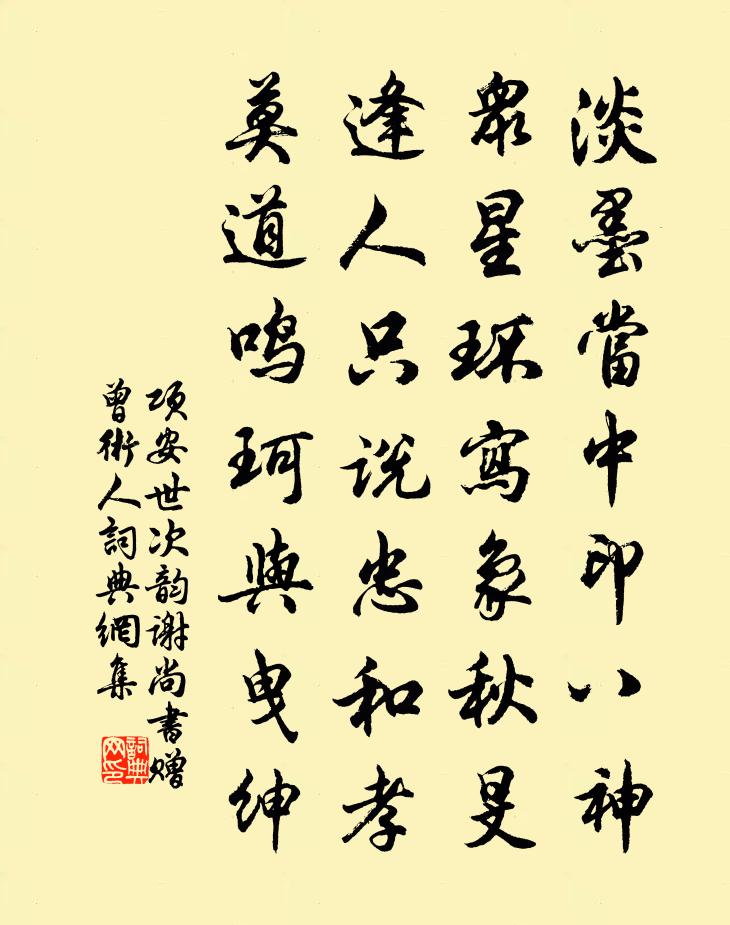 淡墨當中印八神
眾星环寫象秋旻
逢人只説忠和孝
莫道鸣珂與曳紳
项安世次韵谢尚書赠
曾術人詞典網集
詞典
网印